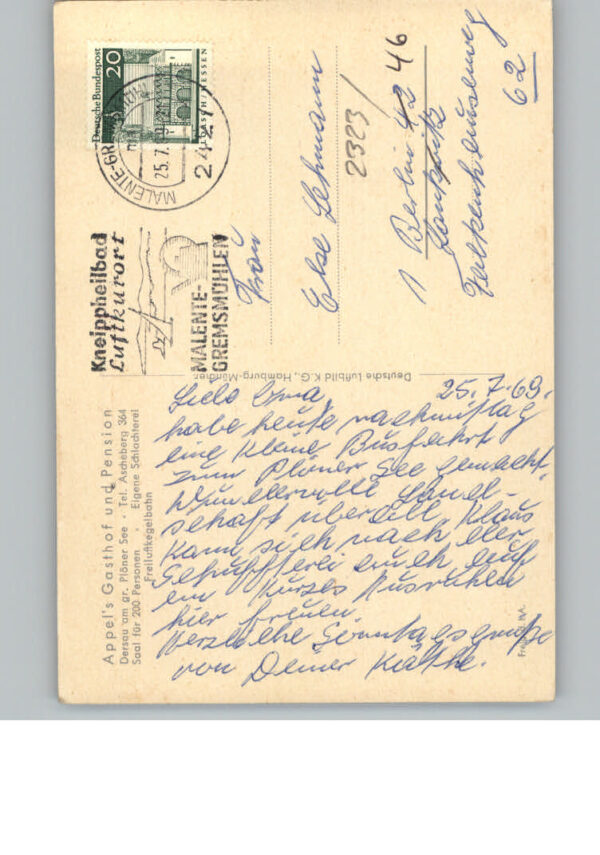 Appel's Gasthof und Pension
Dersau am gr. Plöner See · Tel. Ascheberg 364
Saal für 200 Personen · Eigene Schlachterei
Freiluftkegelbahn
25.7.69.
Liebe Oma,
habe heute nachmittag
eine kleine Busfahrt
zum Plöner See gemacht.
Wundervolle Land-
schaft überall. Klaus
kann sich nach der
Schufterei auch auf
ein kurzes Ausruhen
hier freuen.
Herzliche Sonntagsgrüße
von Deiner Käthe.
Deutsche Luftbild K.G., Hamburg
Kneippheilbad
Luftkurort
MALENTE-
GREMSMÜHLEN
Deutsche Bundespost
20
LORSCH/HESSEN
MALENTE-
25.7.
2427
Frau
Else Lehmann
2323/
1 Berlin 42 46
Lankwitz
Falkenhausenweg
62